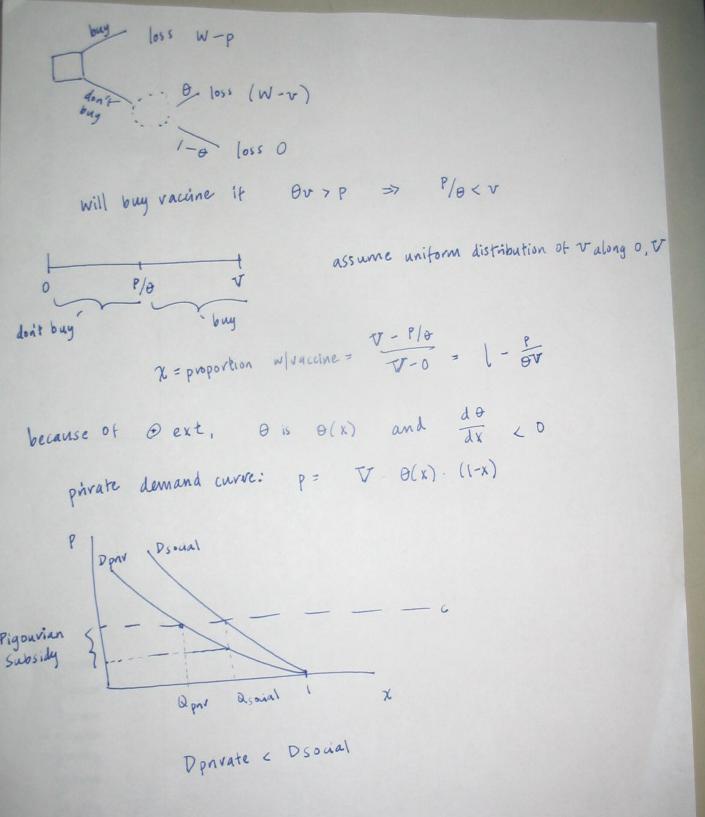 buy loss W-p
don't buy θ loss (W-v)
1-θ loss 0
will buy vaccine if θv > p ⇒ P/θ < v
assume uniform distribution of v along 0, V
0 P/θ V
don't buy buy
x = proportion w/vaccine = (V - P/θ)/(V-0) = 1 - P/(θV)
because of ⊕ ext, θ is θ(x) and dθ/dx < 0
private demand curve: p = V · θ(x) · (1-x)
P
Dpriv Dsocial
c
Pigouvian Subsidy
Qpriv Qsocial 1 x
Dprivate < Dsocial